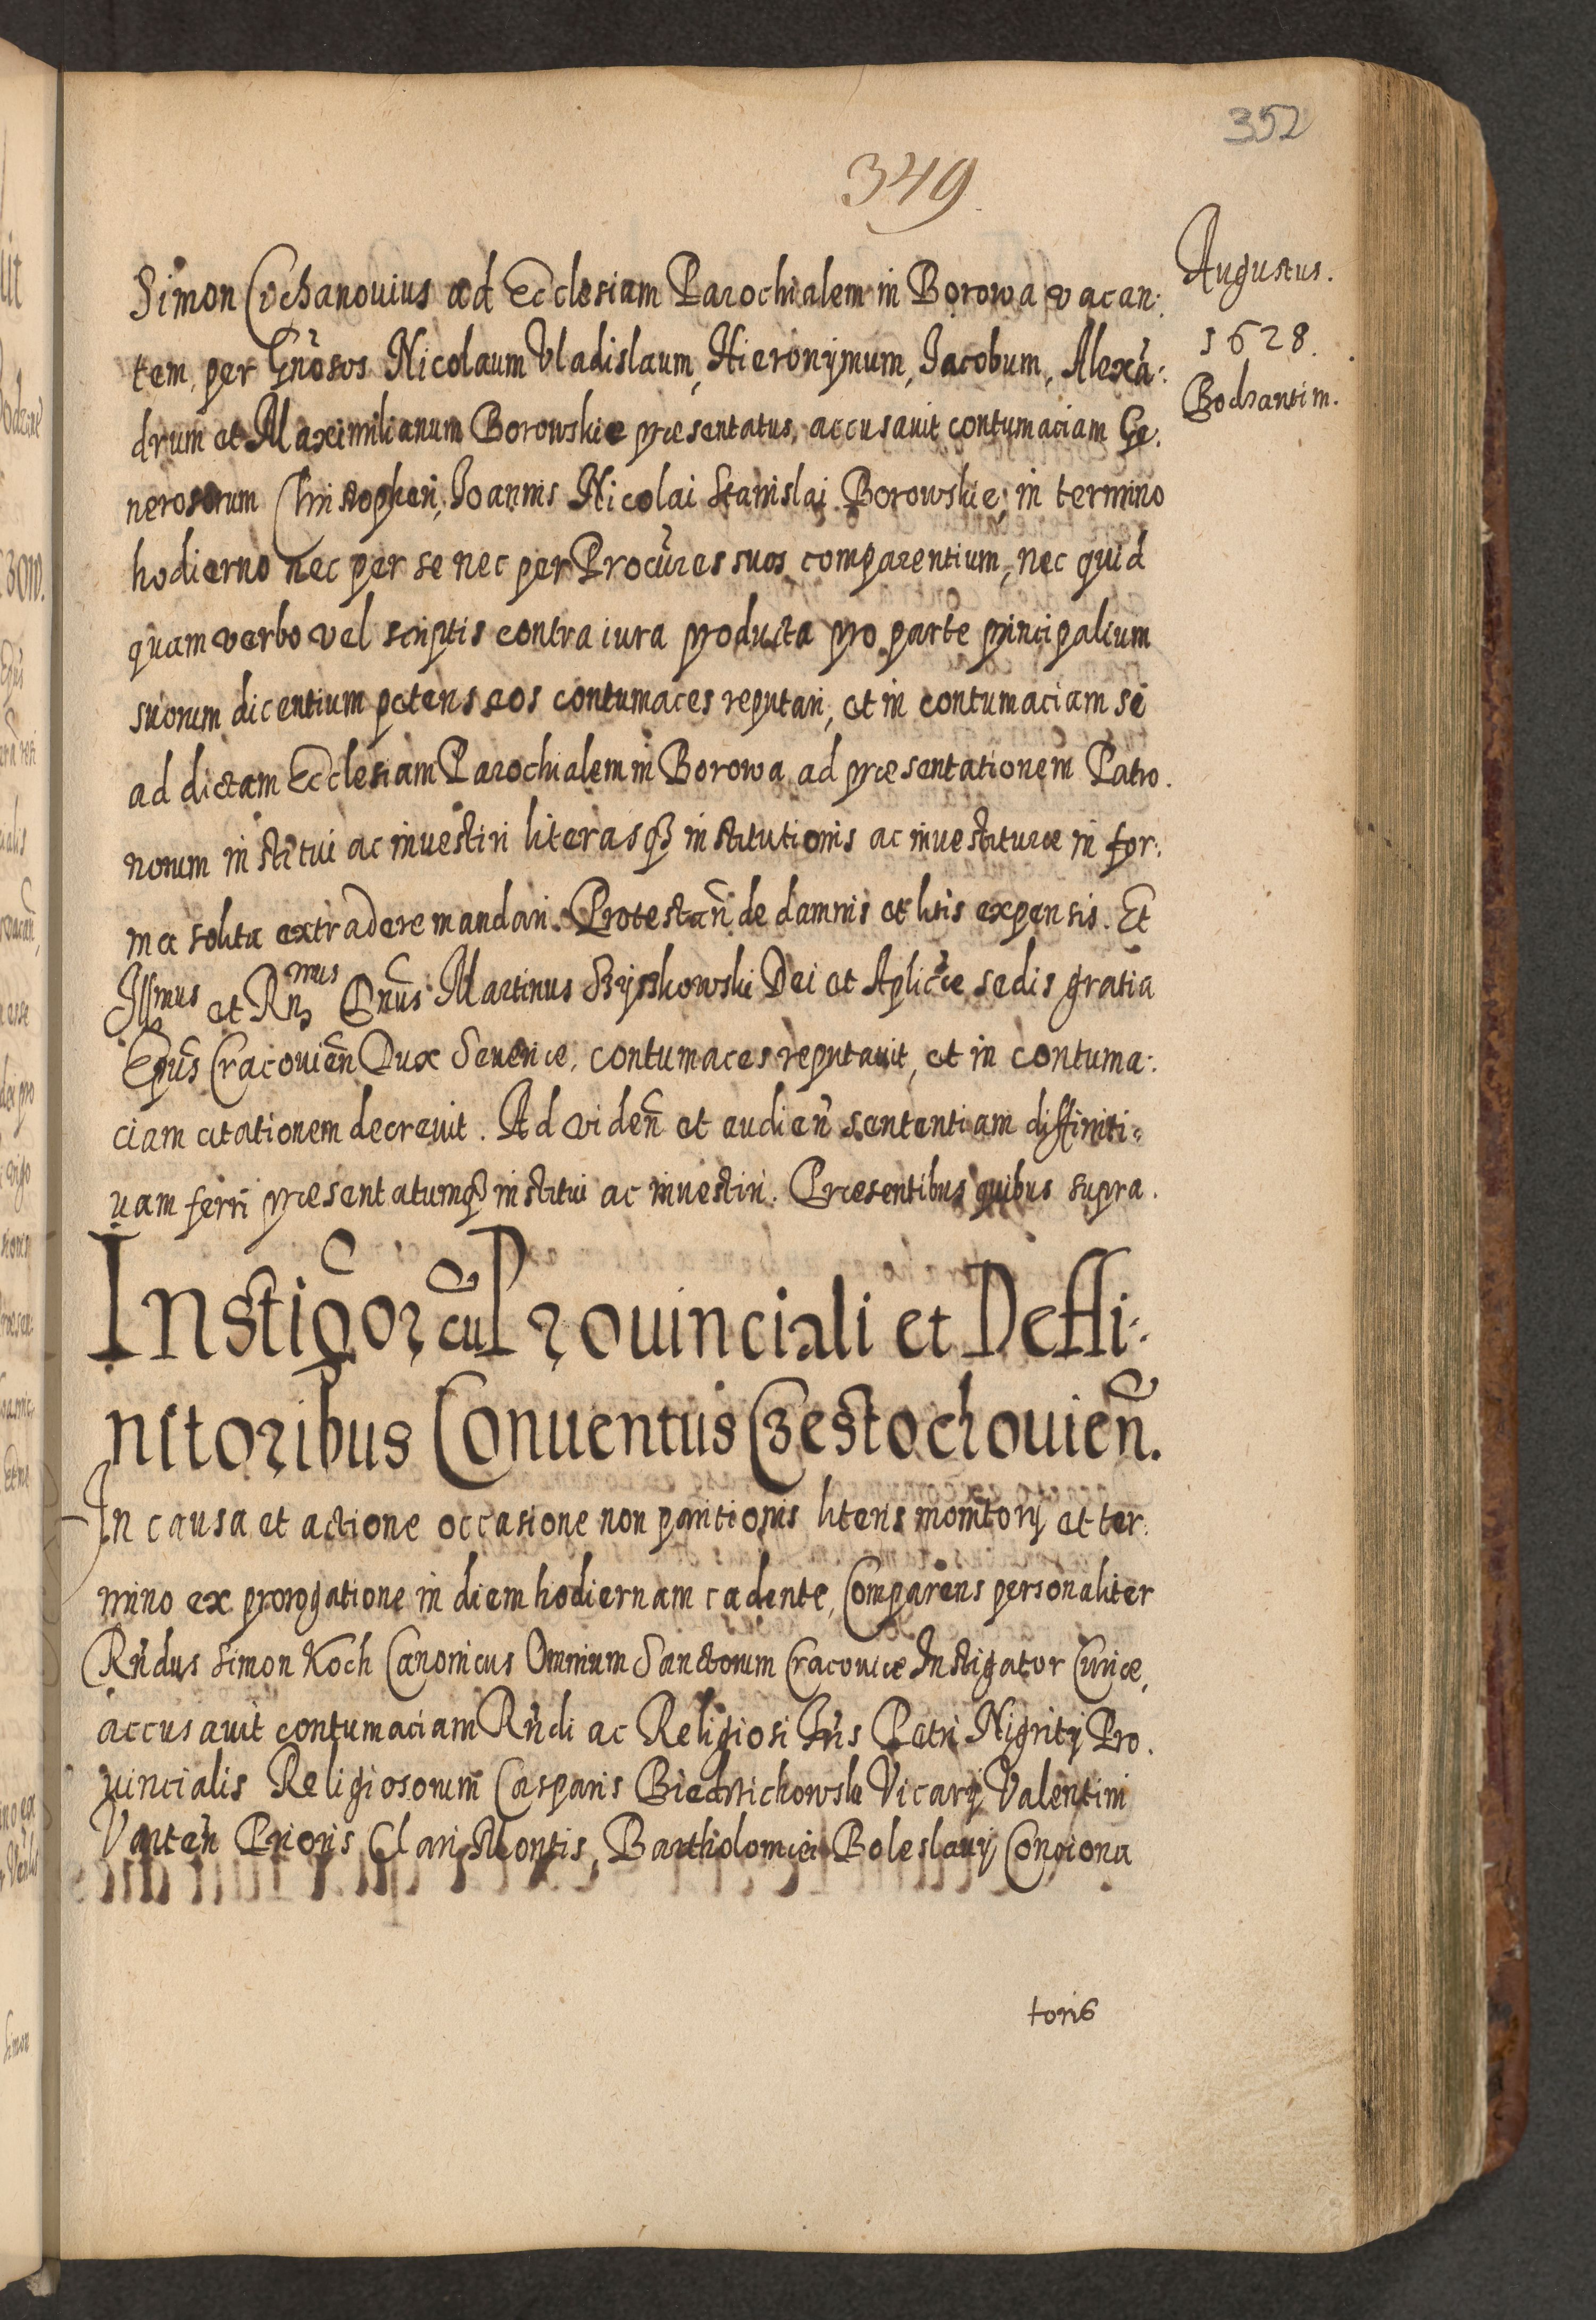 352
349
Augustus.
1628.
Bodzantin.
Simon Cochanouius ad Ecclesiam Parochialem in Borowa vacan:
tem, per Gnosos Nicolaum Vladislaum, Hieronymum, Iacobum, Alexã:
drum et Maximilianum Borowskie præsentatus, accusauit contumaciam Ge:
nerosorum Christopheri, Ioannis Nicolai Stanislai Borowskie, in termino
hodierno nec per se nec per Procũres suos comparentium, nec quid
quam verbo vel scriptis contra iura producta pro parte principalium
suorum dicentium petens eos contumaces reputari, et in contumaciam se
ad dictam Ecclesiam Parochialem in Borowa ad præsentationem Patro.
norum institui ac inuestiri literasq3 institutionis ac inuestituræ in for:
ma solita extradere mandari. Protestañ de damnis et litis expensis. Et
Illmus et Rnmus Dnus Martinus Szyszkowski Dei et Aplicæ sedis gratia
Epus Cracouieñ Dux Seueriæ, contumaces reputauit, et in contuma:
ciam citationem decreuit. Ad videñ et audieñ sententiam diffiniti=
uam ferri præsentatumq3 institui ac inuestiri. Præsentibus quibus supra.
Instigor cũ Prouinciali et Deffi:
nitoribus Conuentus Czestochouieñ.
In causa et actione occasione non paritionis literis monitorij et ter:
mino ex prorogatione in diem hodiernam cadente, Comparens personaliter
Rñdus Simon Koch Canonicus Omnium Sanctorum Cracouiæ Instigator Curiæ,
accusauit contumaciam Rñdi ac Religiosi Fris Petri Nigritij Pro.
uincialis Religiosorum Casparis Vicarij Valentini
Varteñ Prioris Clari Montis, Bartholomæi Boleslauij Conciona
toris